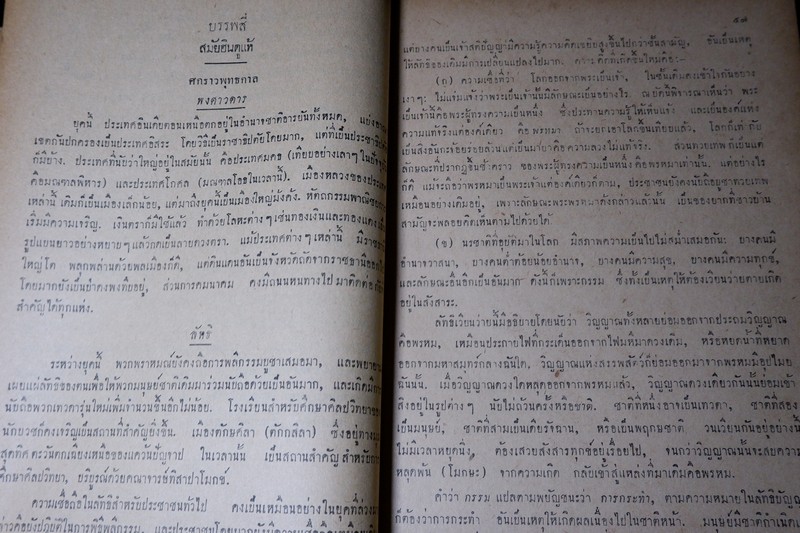 บรรพสี่
สมัยฮินดูแท้
ศกราวพุทธกาล
พงศาวดาร
ยุคนี้ ประเทศอินเดียตอนเหนือตกอยู่ในอำนาจชาติอารยันทั้งหมด, แบ่ง
เขตกันปกครองเป็นประเทศอิสระ โดยวิธีเป็นราชาธิปตัยโดยมาก, แต่ที่เป็นประชาธิป
ก็มีบ้าง. ประเทศที่นับว่าใหญ่อยู่ในสมัยนั้น คือประเทศมคธ (เทียบอย่างเลาๆ ในปัจจุ
คือมณฑลพิหาร) และประเทศโกศล (มณฑลโอธในเวลานี้). เมืองหลวงของประ
เหล่านี้ เดิมก็เป็นเมืองเล็กน้อย, แต่มาถึงยุคนี้เป็นเมืองใหญ่มั่งคั่ง. หัตถกรรมพาณิช
เริ่มมีความเจริญ. เงินตราก็มีใช้แล้ว ทำด้วยโลหะต่างๆ เช่นทองเงินและทองแดง
รูปแบนยาวอย่างหยาบๆ แล้วกดเป็นลายดวงตรา. แม้ประเทศต่างๆ เหล่านี้ มีราช
ใหญ่โต พลุกพล่านด้วยพลเมืองก็ดี, แต่ดินแดนอันเป็นจังหวัดถัดจากราชธานีออก
โดยมากยังเป็นป่าดงพงทึบอยู่, ส่วนการคมนาคม คงมีถนนหนทางไปมาติดต่อกัน
สำคัญได้ทุกแห่ง.
ลัทธิ
ระหว่างยุคนี้ พวกพราหมณ์ยังคงถือการพลีกรรมบูชาเสมอมา, และพยายา
เผยแผ่ลัทธิของตนเพื่อให้พวกมนุษย์ชาติเดิมมารวมนับถือด้วยเป็นอันมาก, และเกิดมีการ
นับถือพวกเทวดารุ่นใหม่เพิ่มจำนวนขึ้นอีกไม่น้อย. โรงเรียนสำหรับศึกษาศิลปวิทยาของ
นักบวชก็คงเจริญเป็นสถานที่สำคัญยิ่งขึ้น. เมืองตักศิลา (ตักกสิลา) ซึ่งอยู่ทาง
สุดทิศตะวันตกเฉียงเหนือของแคว้นปัญจาป ในเวลานั้น เป็นสถานสำคัญสำหรับการ
ศึกษาศิลปวิทยา, บริบูรณ์ด้วยคณาจารย์ทิสาปาโมกข์.
ความเชื่อถือในลัทธิสำหรับประชาชนทั่วไป คงเป็นเหมือนอย่างในยุคที่ล่วงมา
าวคือยังปฏิบัติในการพิธีพลีกรรม, และประชาชนโดยมากยังมีความเชื่อถือผิดเดิม
๕๗
แต่บางคนเป็นเจ้าสติปัญญามีความรู้ความคิดเขยิบสูงขึ้นไปกว่าชั้นสามัญ, อันเป็นเหตุ
ให้ลัทธิของเดิมมีการเปลี่ยนแปลงไปมาก. ความคิดที่เกิดขึ้นใหม่คือ:-
(ก) ความเชื่อที่ว่า โลกออกจากพระเป็นเจ้า, ในชั้นต้นคงเข้าใจกันอย่าง
เงาๆ; ไม่แจ่มแจ้งว่าพระเป็นเจ้านั้นมีลักษณะเป็นอย่างไร. ณ บัดนี้พิจารณาเห็นว่า พระ
เป็นเจ้านี้คือพระผู้ทรงความเป็นหนึ่ง ซึ่งประทานความรู้ให้เห็นแจ้ง และเป็นองค์แห่ง
ความแท้จริงแต่องค์เดียว คือ พรหมา ถ้าจะยกเอาโลกขึ้นเทียบแล้ว, โลกก็เท่ากับ
เป็นสิ่งอันกระจ้อยร่อยล้วนแต่เป็นมายาคือความลวงไม่แท้จริง. ส่วนทวยเทพ ก็เป็นแต่
ลักษณะที่ปรากฏขึ้นชั่วคราว ของพระผู้ทรงความเป็นหนึ่ง คือพรหมาเท่านั้น. แต่อย่างไร
ก็ดี แม้จะถือว่าพรหมาเป็นพระเจ้าแต่องค์เดียวก็ตาม, ประชาชนยังคงนับถือบูชาทวยเทพ
เหมือนอย่างเดิมอยู่, เพราะลักษณะพระพรหมาดังกล่าวแล้วนั้น เป็นของยากที่ชาวบ้าน
สามัญจะพลอยคิดเห็นตามไปด้วยได้.
(ข) นรชาติที่อุบัติมาในโลก มีสภาพความเป็นไปไม่สม่ำเสมอกัน: บางคนมี
อำนาจวาสนา, บางคนต่ำต้อยน้อยอำนาจ, บางคนมีความสุข, บางคนมีความทุกข์,
และลักษณะอื่นอีกเป็นอันมาก ดังนี้ก็เพราะกรรม ซึ่งทั้งเป็นเหตุให้ต้องเวียนว่ายตายเกิด
อยู่ในสังสาระ.
ลัทธิเวียนว่ายนี้มีอธิบายโดยนัยว่า วิญญาณทั้งหลายย่อมออกจากประถมวิญญาณ
คือพรหม, เหมือนประกายไฟที่กระเด็นออกจากไฟมหึมาดวงเดิม, หรือหยดน้ำที่หยาด
ออกจากมหาสมุทร์กลางฉันใด, วิญญาณแห่งสรรพสัตว์ก็ย่อมออกมาจากพรหมมีอุปไมย
ฉันนั้น. เมื่อวิญญาณดวงใดหลุดออกจากพรหมแล้ว, วิญญาณดวงเดียวกันนั้นย่อมเข้า
สิงอยู่ในรูปต่างๆ นับไม่ถ้วนครั้งหรือชาติ. ชาติที่หนึ่งอาจเป็นเทวดา, ชาติที่สอง
เป็นมนุษย์, ชาติที่สามเป็นเดียรัจฉาน, หรือเป็นพฤกษชาติ วนเวียนกันอยู่อย่างนี้
ไม่มีเวลาหยุดนิ่ง, ต้องเสวยสังสารทุกข์อยู่เรื่อยไป, จนกว่าวิญญาณนั้นจะสบความ
หลุดพ้น (โมกษะ) จากความเกิด กลับเข้าสู่แหล่งที่มาเดิมคือพรหม.
คำว่า กรรม แปลตามพยัญชนะว่า การกระทำ, ตามความหมายในลัทธิบัญญ
ก็ต้องว่าการกระทำ อันเป็นเหตุให้เกิดผลเนื่องไปในชาติหน้า. มนุษย์มีชาติกำเนิด